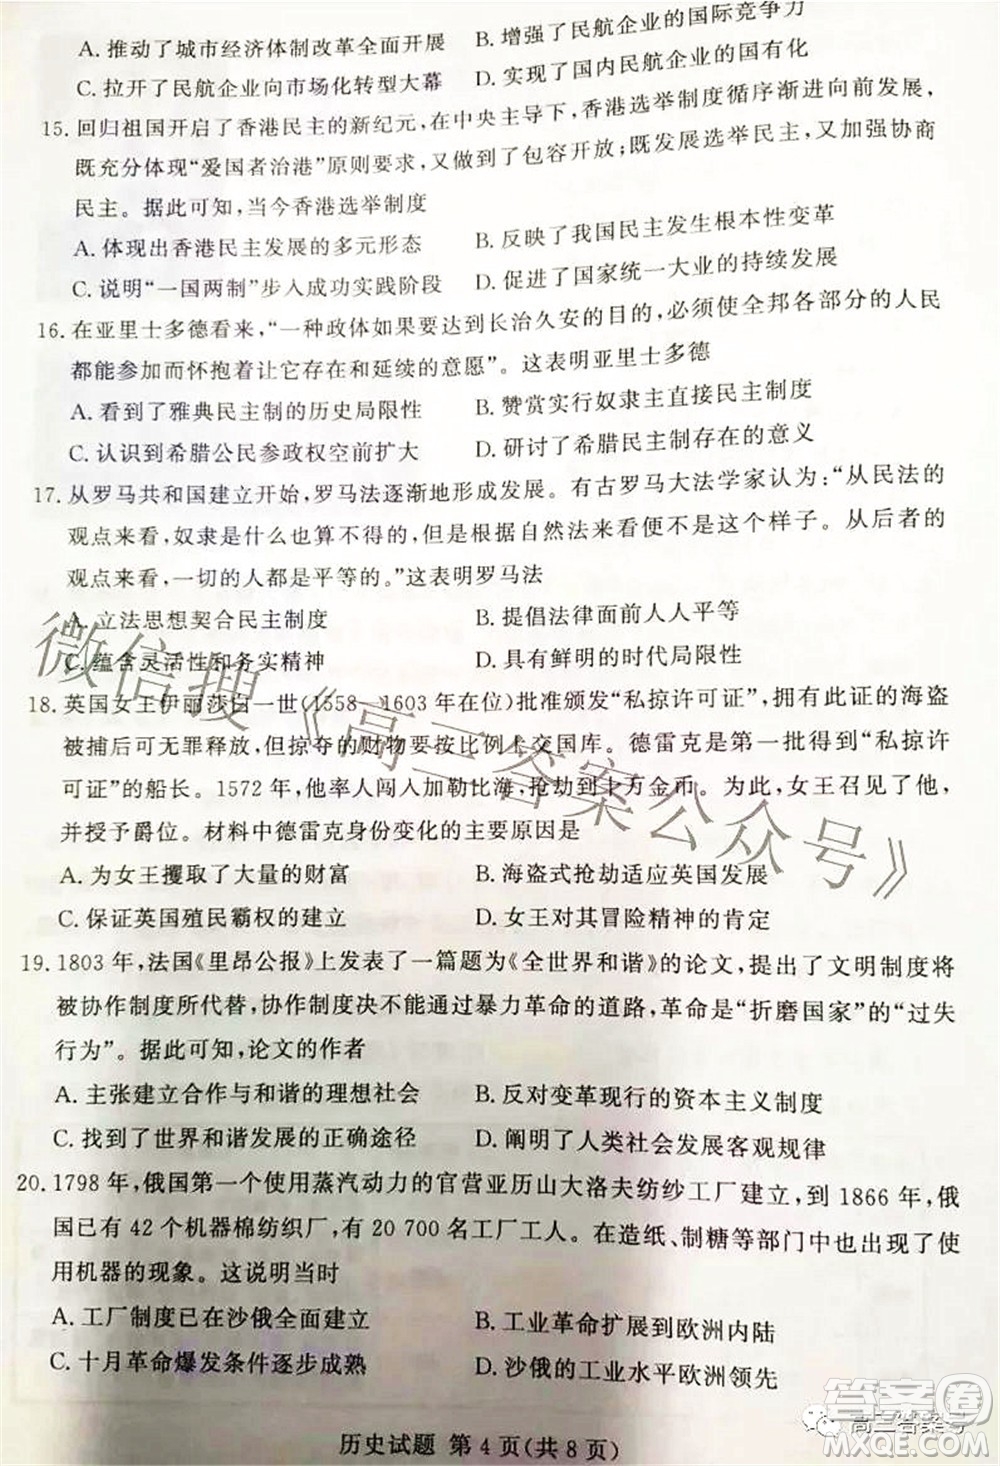 A. 推动了城市经济体制改革全面开展
B. 增强了民航企业的国际竞争力
C. 拉开了民航企业向市场化转型大幕
D. 实现了国内民航企业的国有化
15. 回归祖国开启了香港民主的新纪元，在中央主导下，香港选举制度循序渐进向前发展，
既充分体现“爱国者治港”原则要求，又做到了包容开放；既发展选举民主，又加强协商
民主。据此可知，当今香港选举制度
A. 体现出香港民主发展的多元形态
B. 反映了我国民主发生根本性变革
C. 说明“一国两制”步入成功实践阶段
D. 促进了国家统一大业的持续发展
16. 在亚里士多德看来，“一种政体如果要达到长治久安的目的，必须使全邦各部分的人民
都能参加而怀抱着让它存在和延续的意愿”。这表明亚里士多德
A. 看到了雅典民主制的历史局限性
B. 赞赏实行奴隶主直接民主制度
C. 认识到希腊公民参政权空前扩大
D. 研讨了希腊民主制存在的意义
17. 从罗马共和国建立开始，罗马法逐渐地形成发展。有古罗马大法学家认为：“从民法的
观点来看，奴隶是什么也算不上的，但是根据自然法来看便不是这个样子。从后者的
观点来看，一切的人都是平等的。”这表明罗马法
A. 立法思想契合民主制度
B. 提倡法律面前人人平等
C. 蕴含灵活性和务实精神
D. 具有鲜明的时代局限性
18. 英国女王伊丽莎白一世(1558—1603年在位)批准颁发“私掠许可证”，拥有此证的海盗
被捕后可无罪释放，但掠夺的财物要按比例上交国库。德雷克是第一批得到“私掠许
可证”的船长。1572年，他率人闯入加勒比海，抢劫到上万金币。女王召见了他，
并授予爵位。材料中德雷克身份变化的主要原因是
A. 为女王攫取了大量的财富
B. 海盗式抢劫适应英国发展
C. 保证英国殖民霸权的建立
D. 女王对其冒险精神的肯定
19. 1803年，法国《里昂公报》上发表了一篇题为《全世界和谐》的论文，提出了文明制度将
被协作制度所代替，协作制度决不能通过暴力革命的道路，革命是“折磨国家”的“过失
行为”。据此可知，论文的作者
A. 主张建立合作与和谐的理想社会
B. 反对变革现行的资本主义制度
C. 找到了世界和谐发展的正确途径
D. 阐明了人类社会发展客观规律
20. 1798年，俄国第一个使用蒸汽动力的官营亚历山大洛夫纺纱工厂建立，到1866年，俄
国已有42个机器棉纺织厂，有20 700名工厂工人。在造纸、制糖等部门中也出现了使
用机器的现象。这说明当时
A. 工厂制度已在沙俄全面建立
B. 工业革命扩展到欧洲内陆
C. 十月革命爆发条件逐步成熟
D. 沙俄的工业水平欧洲领先
历史试题 第4页(共8页)
微信搜《高三答案公众号》
高三答案号
答案圈
MXQE.COM